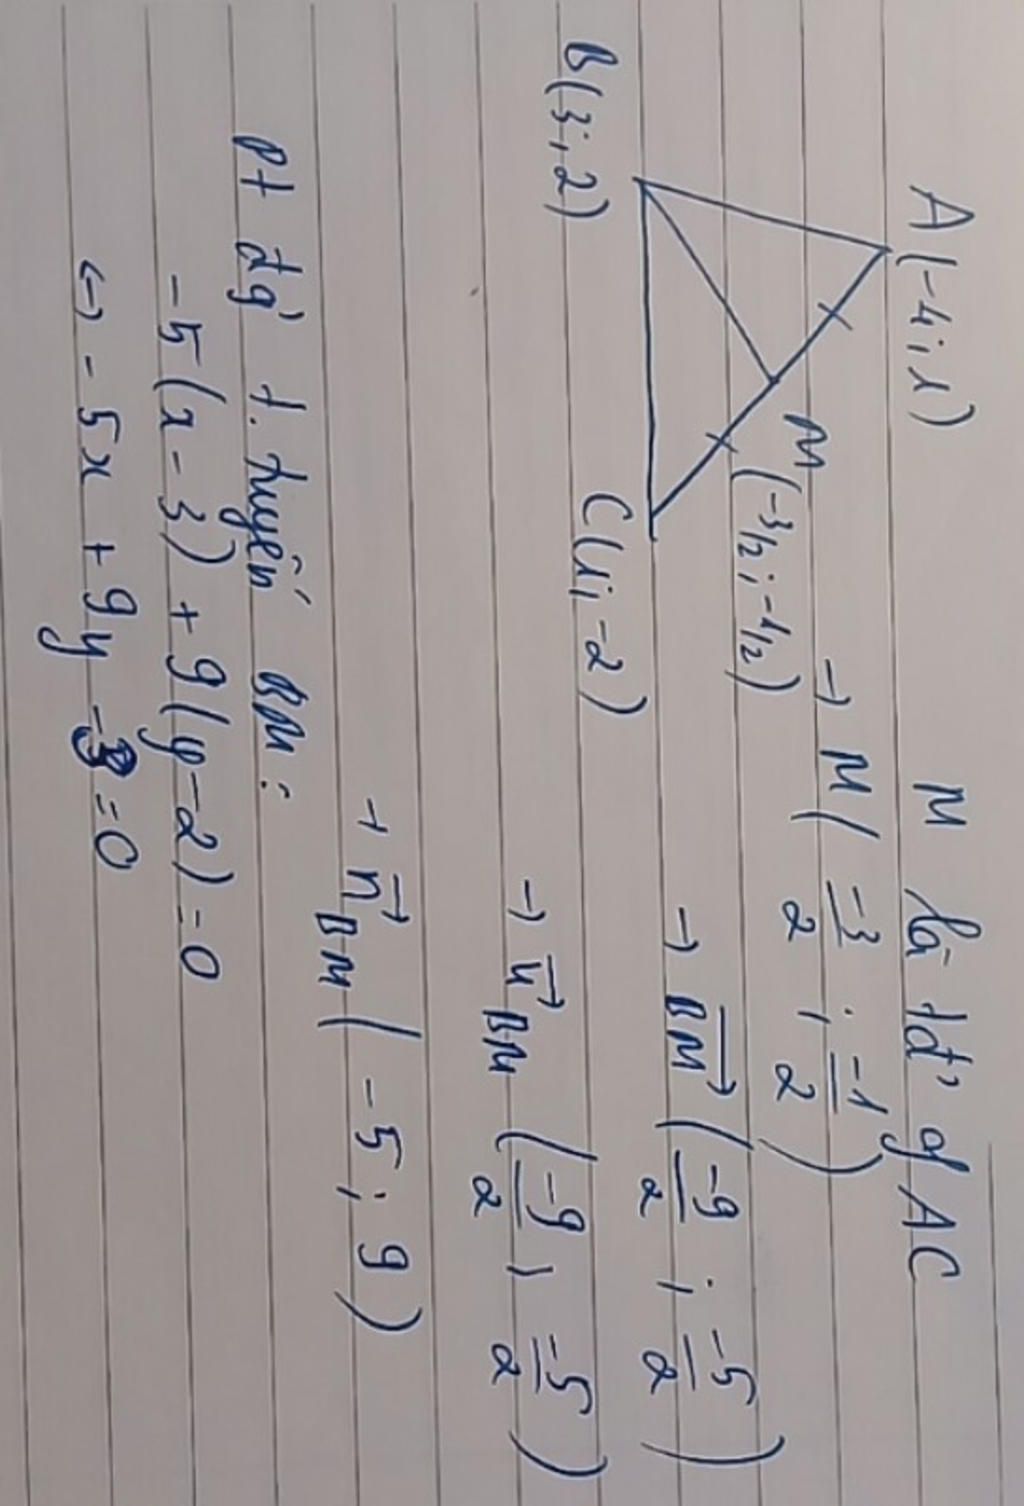 A(-4; 1)
M là tđ' of AC
M
(-3/2; -1/2)
→ M(-3/2; -1/2)
B(3; 2)
C(1; -2)
→ BM→(-9/2; -5/2)
→ u→BM(-9/2; -5/2)
→ n→BM(-5; 9)
Pt đg' t. tuyến BM:
-5(x-3) + 9(y-2) = 0
↔ -5x + 9y -3 = 0